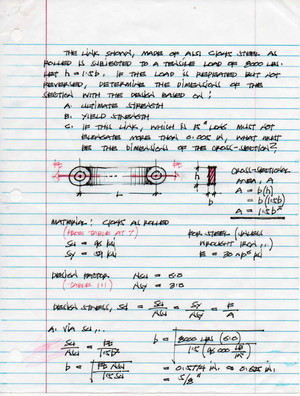 THE LINK SHOWN, MADE OF AISI C1045 STEEL AS
ROLLED IS SUBJECTED TO A TENSILE LOAD OF 8000 LBS.
LET h = 1.5b. IF THE LOAD IS REPEATED BUT NOT
REVERSED, DETERMINE THE DIMENSIONS OF THE
SECTION WITH THE DESIGN BASED ON:
A. ULTIMATE STRENGTH
B. YIELD STRENGTH
C. IF THIS LINK, WHICH IS 15" LONG MUST NOT
ELONGATE MORE THAN 0.005 IN, WHAT MUST
BE THE DIMENSIONS OF THE CROSS-SECTION?
CROSS-SECTIONAL
AREA, A
A = b(h)
= b(1.5b)
A = 1.5b²
h
b
L
MATERIAL: C1045 AS ROLLED
(FROM TABLE AT 7)
Su = 96 ksi
Sy = 59 ksi
FOR STEEL (UNLESS
WROUGHT IRON...)
E = 30x10⁶ psi
DESIGN FACTOR
(TABLE 1.1)
Nsu = 6.0
Nsy = 3.0
DESIGN STRESS, Sd = Su/Nsu = Sy/Nsy = F/A
A. VIA Su...
b = √
8000 LBS (6.0)
= 0.5774 in. ≈ 0.625 in.
= 5/8"